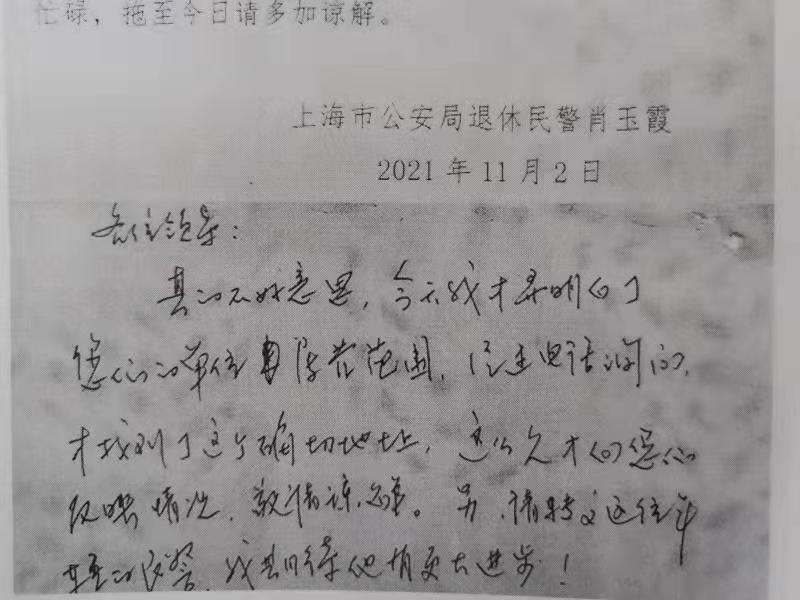 忙碌，拖至今日请多加谅解。
上海市公安局退休民警肖玉霞
2021年11月2日
各位领导：
真的不好意思，今天我才弄明白了
您们的单位 范围，经过电话询问，
才找到了这个确切地址，这么久才向您们
反映情况，敬请谅解。另，请转交这位年
轻的民警，我期待他有更大进步！